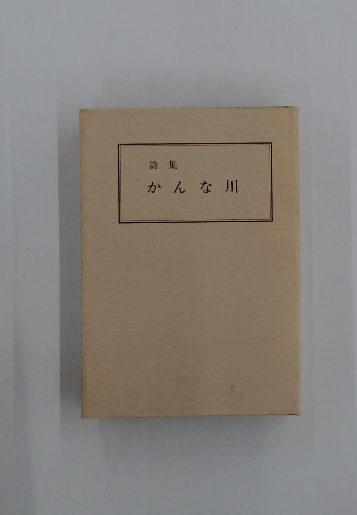 詩集
かんな川